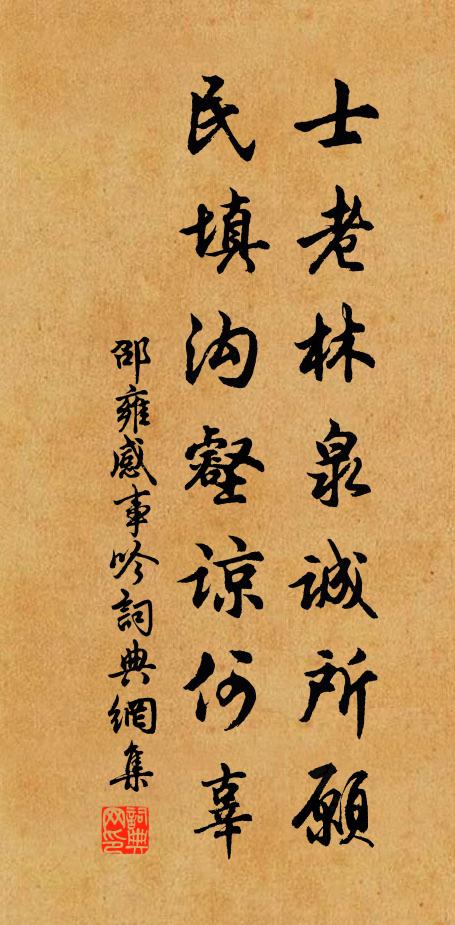 士老林泉诚所愿
民填沟壑谅何辜
邵雍感事吟詞典網集
詞典网印